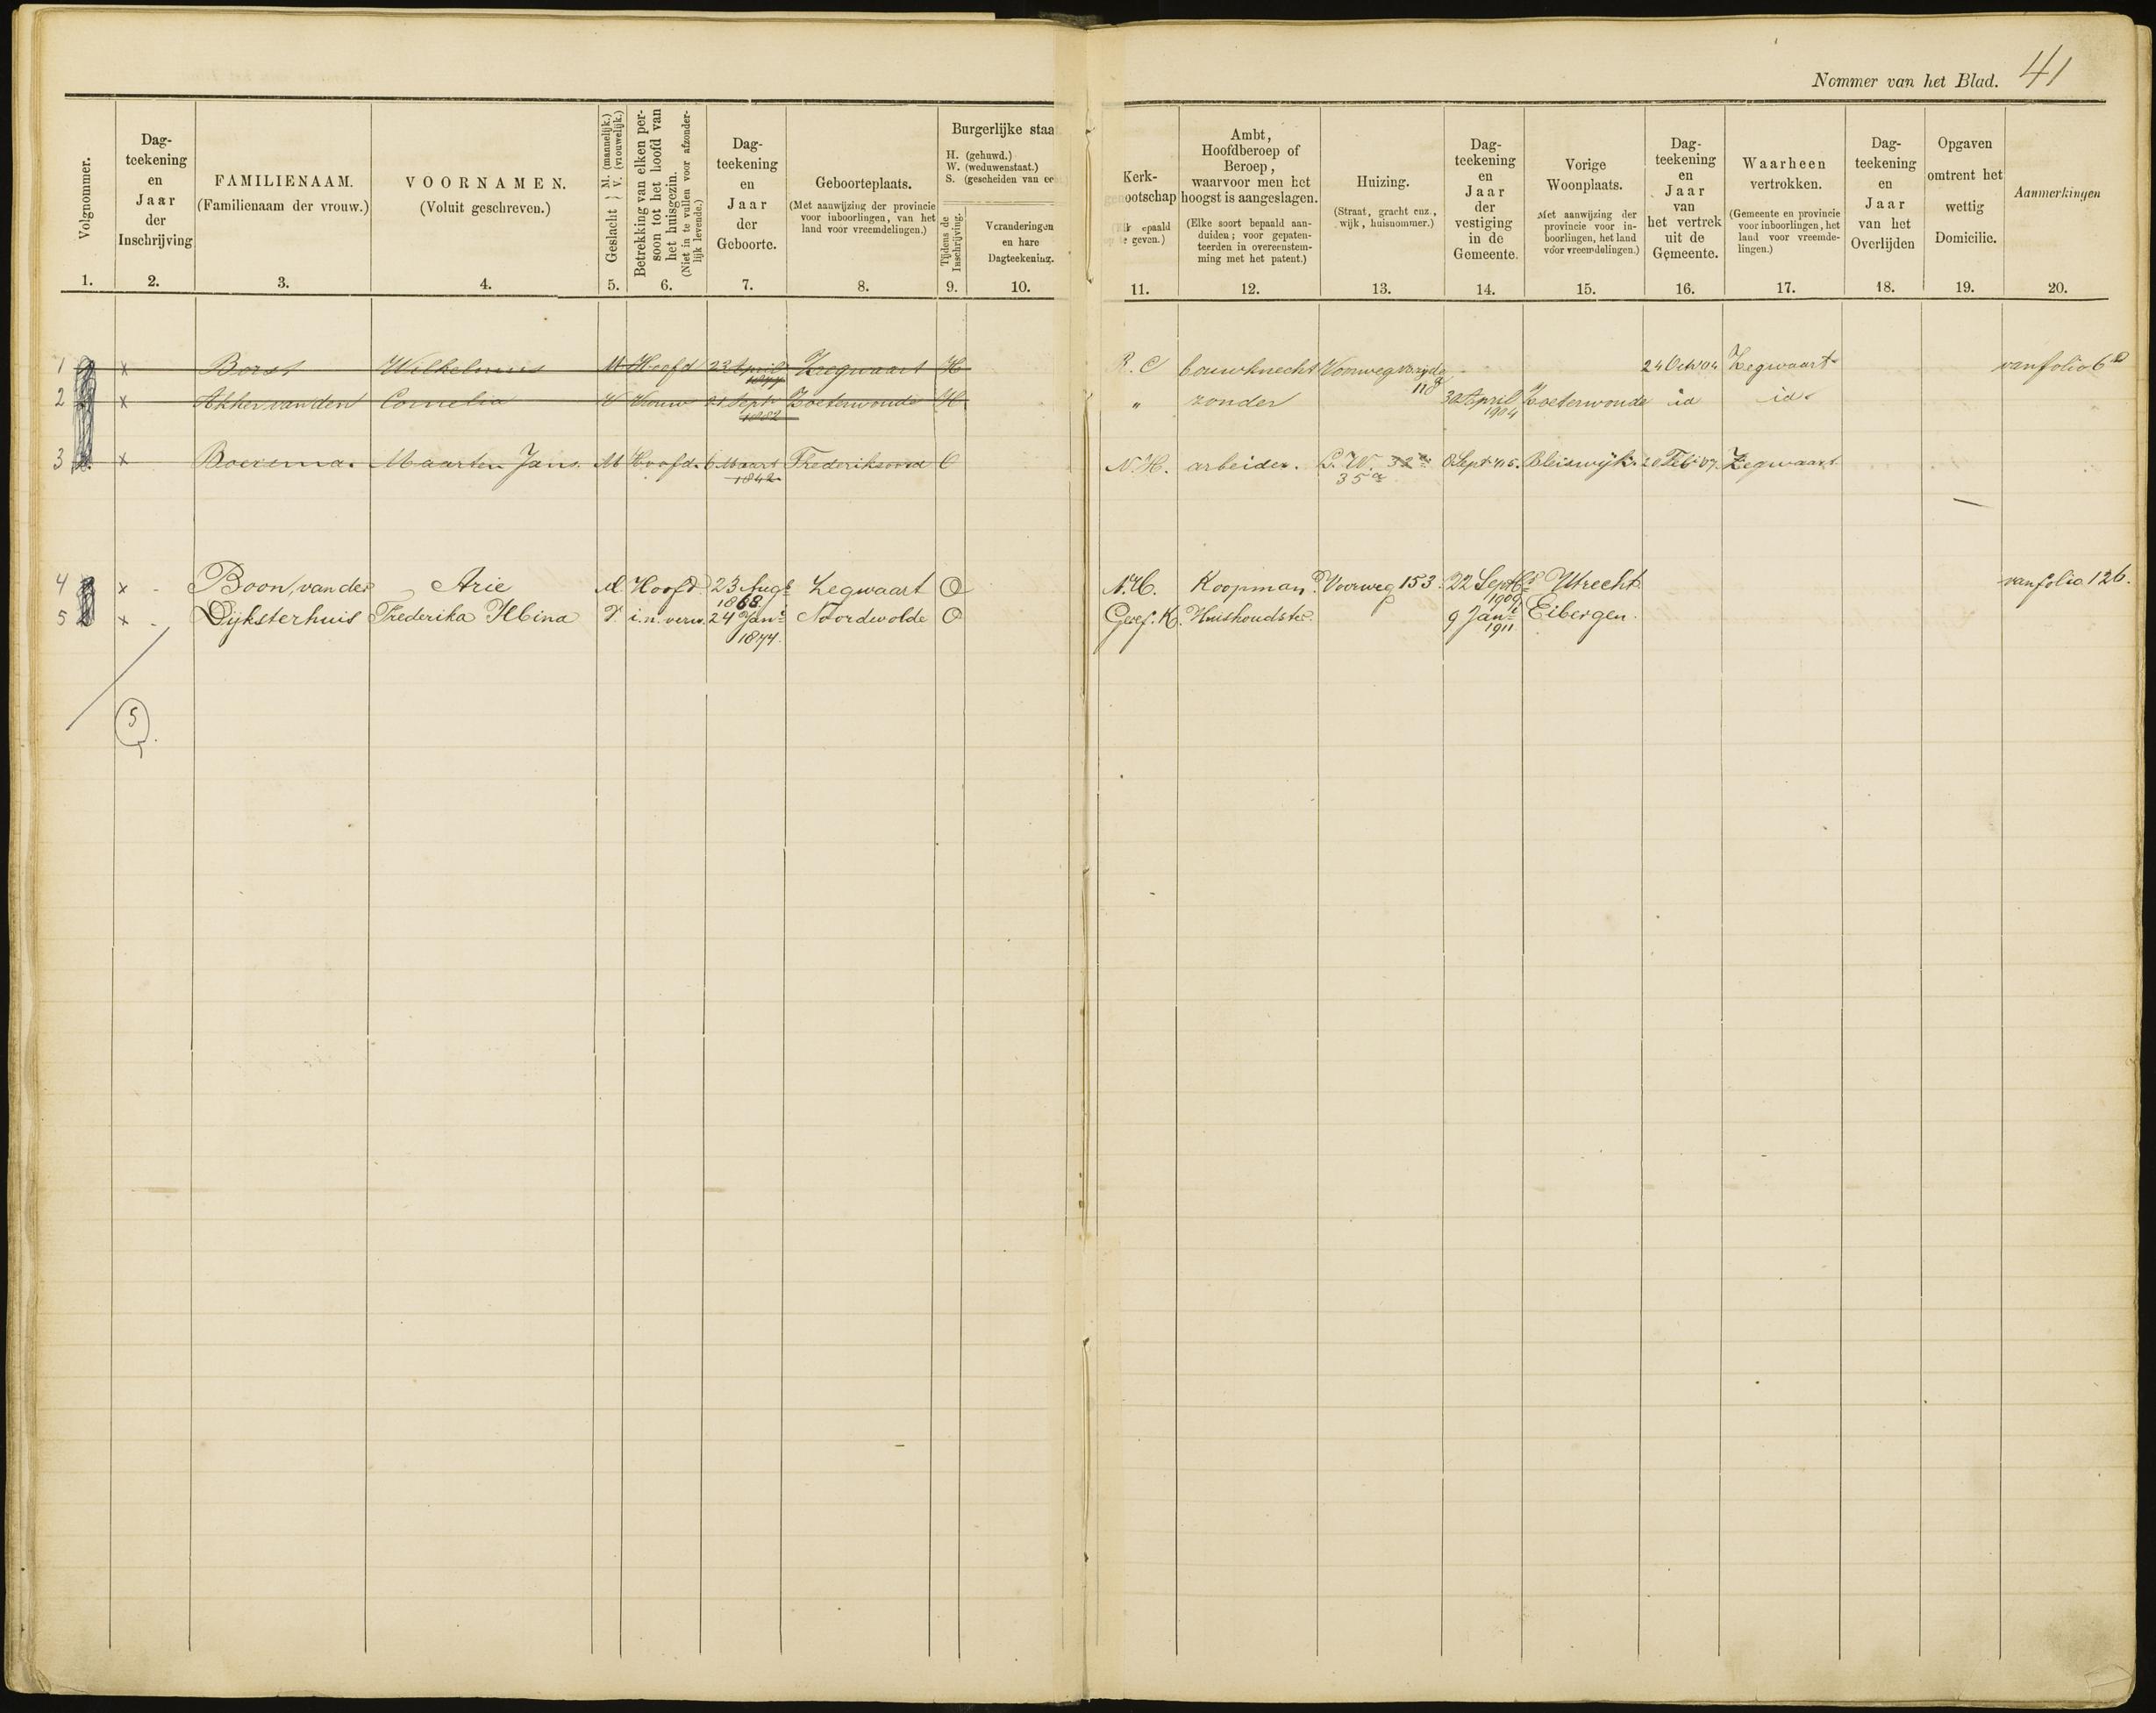 Nommer van het Blad. 41
Volgnommer.
Dag-
teekening
en
Jaar
der
Inschrijving
FAMILIENAAM.
(Familienaam der vrouw.)
VOORNAMEN.
(Voluit geschreven.)
Geslacht } M. (mannelijk.) V. (vrouwelijk.)
Betrekking van elken per-
soon tot het hoofd van
het huisgezin.
(Niet in te vullen voor afzonder-
lijk levende.)
Dag-
teekening
en
Jaar
der
Geboorte.
Geboorteplaats.
(Met aanwijzing der provincie
voor inboorlingen, van het
land voor vreemdelingen.)
Burgerlijke staa
H. (gehuwd.)
W. (weduwenstaat.)
S. (gescheiden van ec
Tijdens de
Inschrijving.
Veranderingen
en hare
Dagteekening.
Kerk-
ootschap
epaald
te geven.)
Ambt,
Hoofdberoep of
Beroep,
waarvoor men het
hoogst is aangeslagen.
(Elke soort bepaald aan-
duiden; voor gepaten-
teerden in overeenstem-
ming met het patent.)
Huizing.
(Straat, gracht enz.,
wijk, huisnommer.)
Dag-
teekening
en
Jaar
der
vestiging
in de
Gemeente.
Vorige
Woonplaats.
Met aanwijzing der
provincie voor in-
boorlingen, het land
vóór vreemdelingen.)
Dag-
teekening
en
Jaar
van
het vertrek
uit de
Gemeente.
Waarheen
vertrokken.
(Gemeente en provincie
voor inboorlingen, het
land voor vreemde-
lingen.)
Dag-
teekening
en
Jaar
van het
Overlijden
Opgaven
omtrent het
wettig
Domicilie.
Aanmerkingen
1. 2. 3. 4. 5. 6. 7. 8. 9. 10. 11. 12. 13. 14. 15. 16. 17. 18. 19. 20.
1 x Borst Wilhelmus M Hoofd 23 April Zegwaart H R.C bouwknecht Voorweg 24 Oct 04 Zegwaart van folio 6
110a
2 x Akker van den Cornelia V Vrouw 21 Sept Zoeterwoude H " zonder 30 April Zoeterwoude id id
1882 1904
3 x Boerema. Maarten Jans. M Hoofd. 6 Maart Frederiksoord O N.H. arbeider. L.W. 32a 8 Sept 05. Bleiswijk. 20 Feb 07. Zegwaart
1842 35a
4 x Boon, van der Arie M. Hoofd. 23 Augs Zegwaart O N.H. Koopman. Voorweg 153. 22 Septbr Utrecht van folio 126.
1868 1909
5 x Dijksterhuis Frederika Albina V. i.n. verw. 24 Jani Noordwolde O Geref. K. Huishoudster. 9 Jani Eibergen.
1877. 1911
5